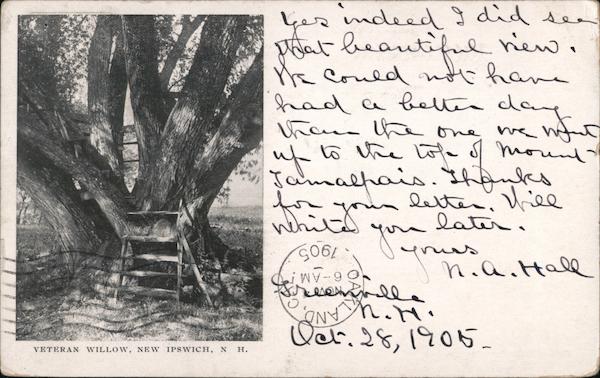 Yes indeed I did see
that beautiful view.
We could not have
had a better day
than the one we went
up to the top of Mount
Tamalpais. Thanks
for your letter. Will
write you later.
yours
N. A. Hall
Greenville
N. H.
Oct. 28, 1905.
OAKLAND, CAL.
NOV
6-AM
1905
VETERAN WILLOW, NEW IPSWICH, N H.